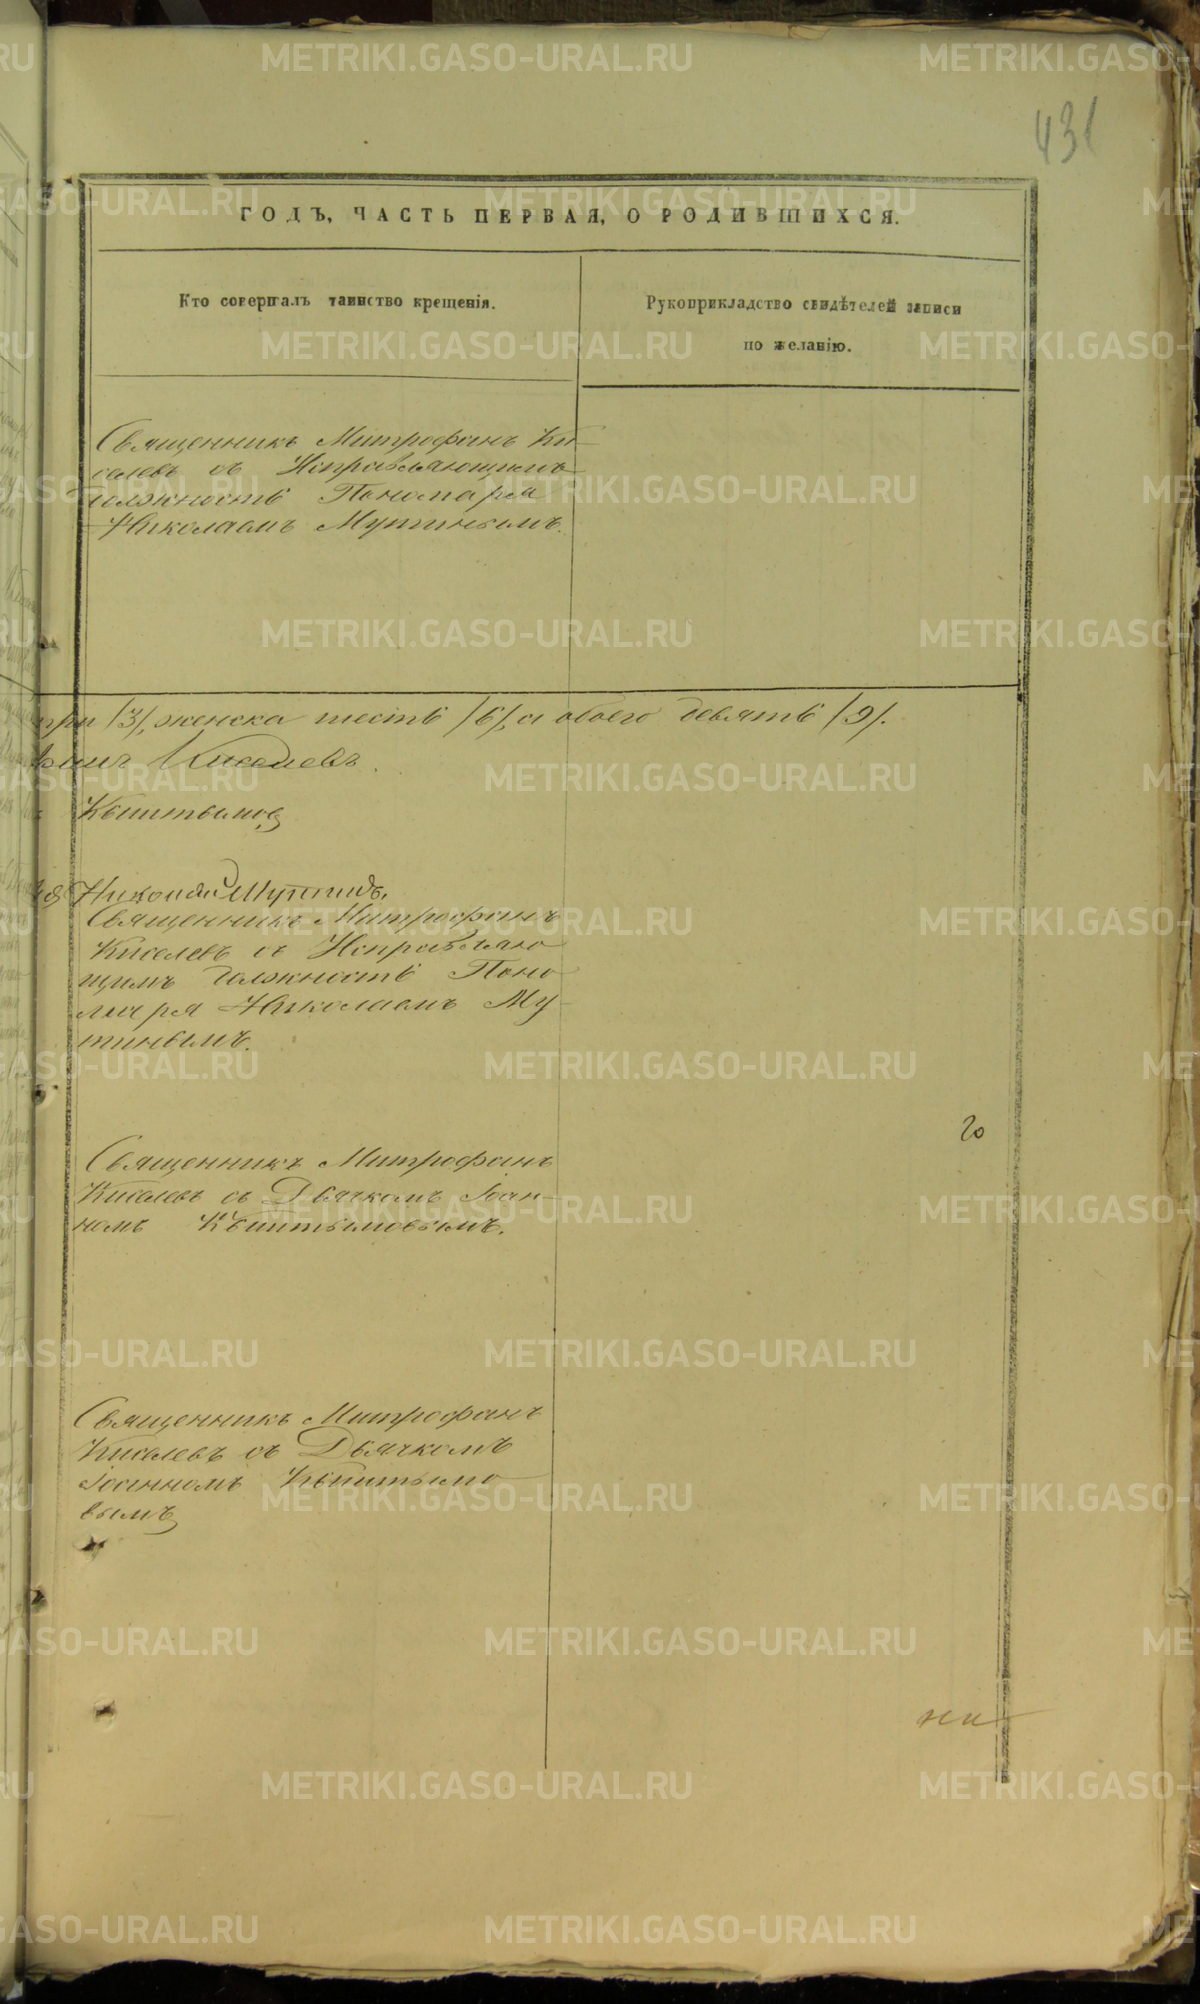 431
ГОДЪ, ЧАСТЬ ПЕРВАЯ, О РОДИВШИХСЯ.
Кто совершалъ таинство крещенія.
Рукоприкладство свидѣтелей записи
по желанію.
Священникъ Митрофанъ Ки-
селевъ съ Исправляющимъ
должность Пономаря
Николаемъ Мутинымъ.
три /3/, женска шесть /6/, а обоего девять /9/.
Киселевъ.
Кыштымов
Николай Мутинъ.
Священникъ Митрофанъ
Киселевъ съ Исправляю
щимъ должность Поно
маря Николаемъ Му-
тинымъ.
Священникъ Митрофанъ
Киселевъ съ Дьячкомъ Іоан-
номъ Кыштымовымъ.
Священникъ Митрофанъ
Киселевъ съ Дьячкомъ
Іоанномъ Кыштымо
вымъ
METRIKI.GASO-URAL.RU